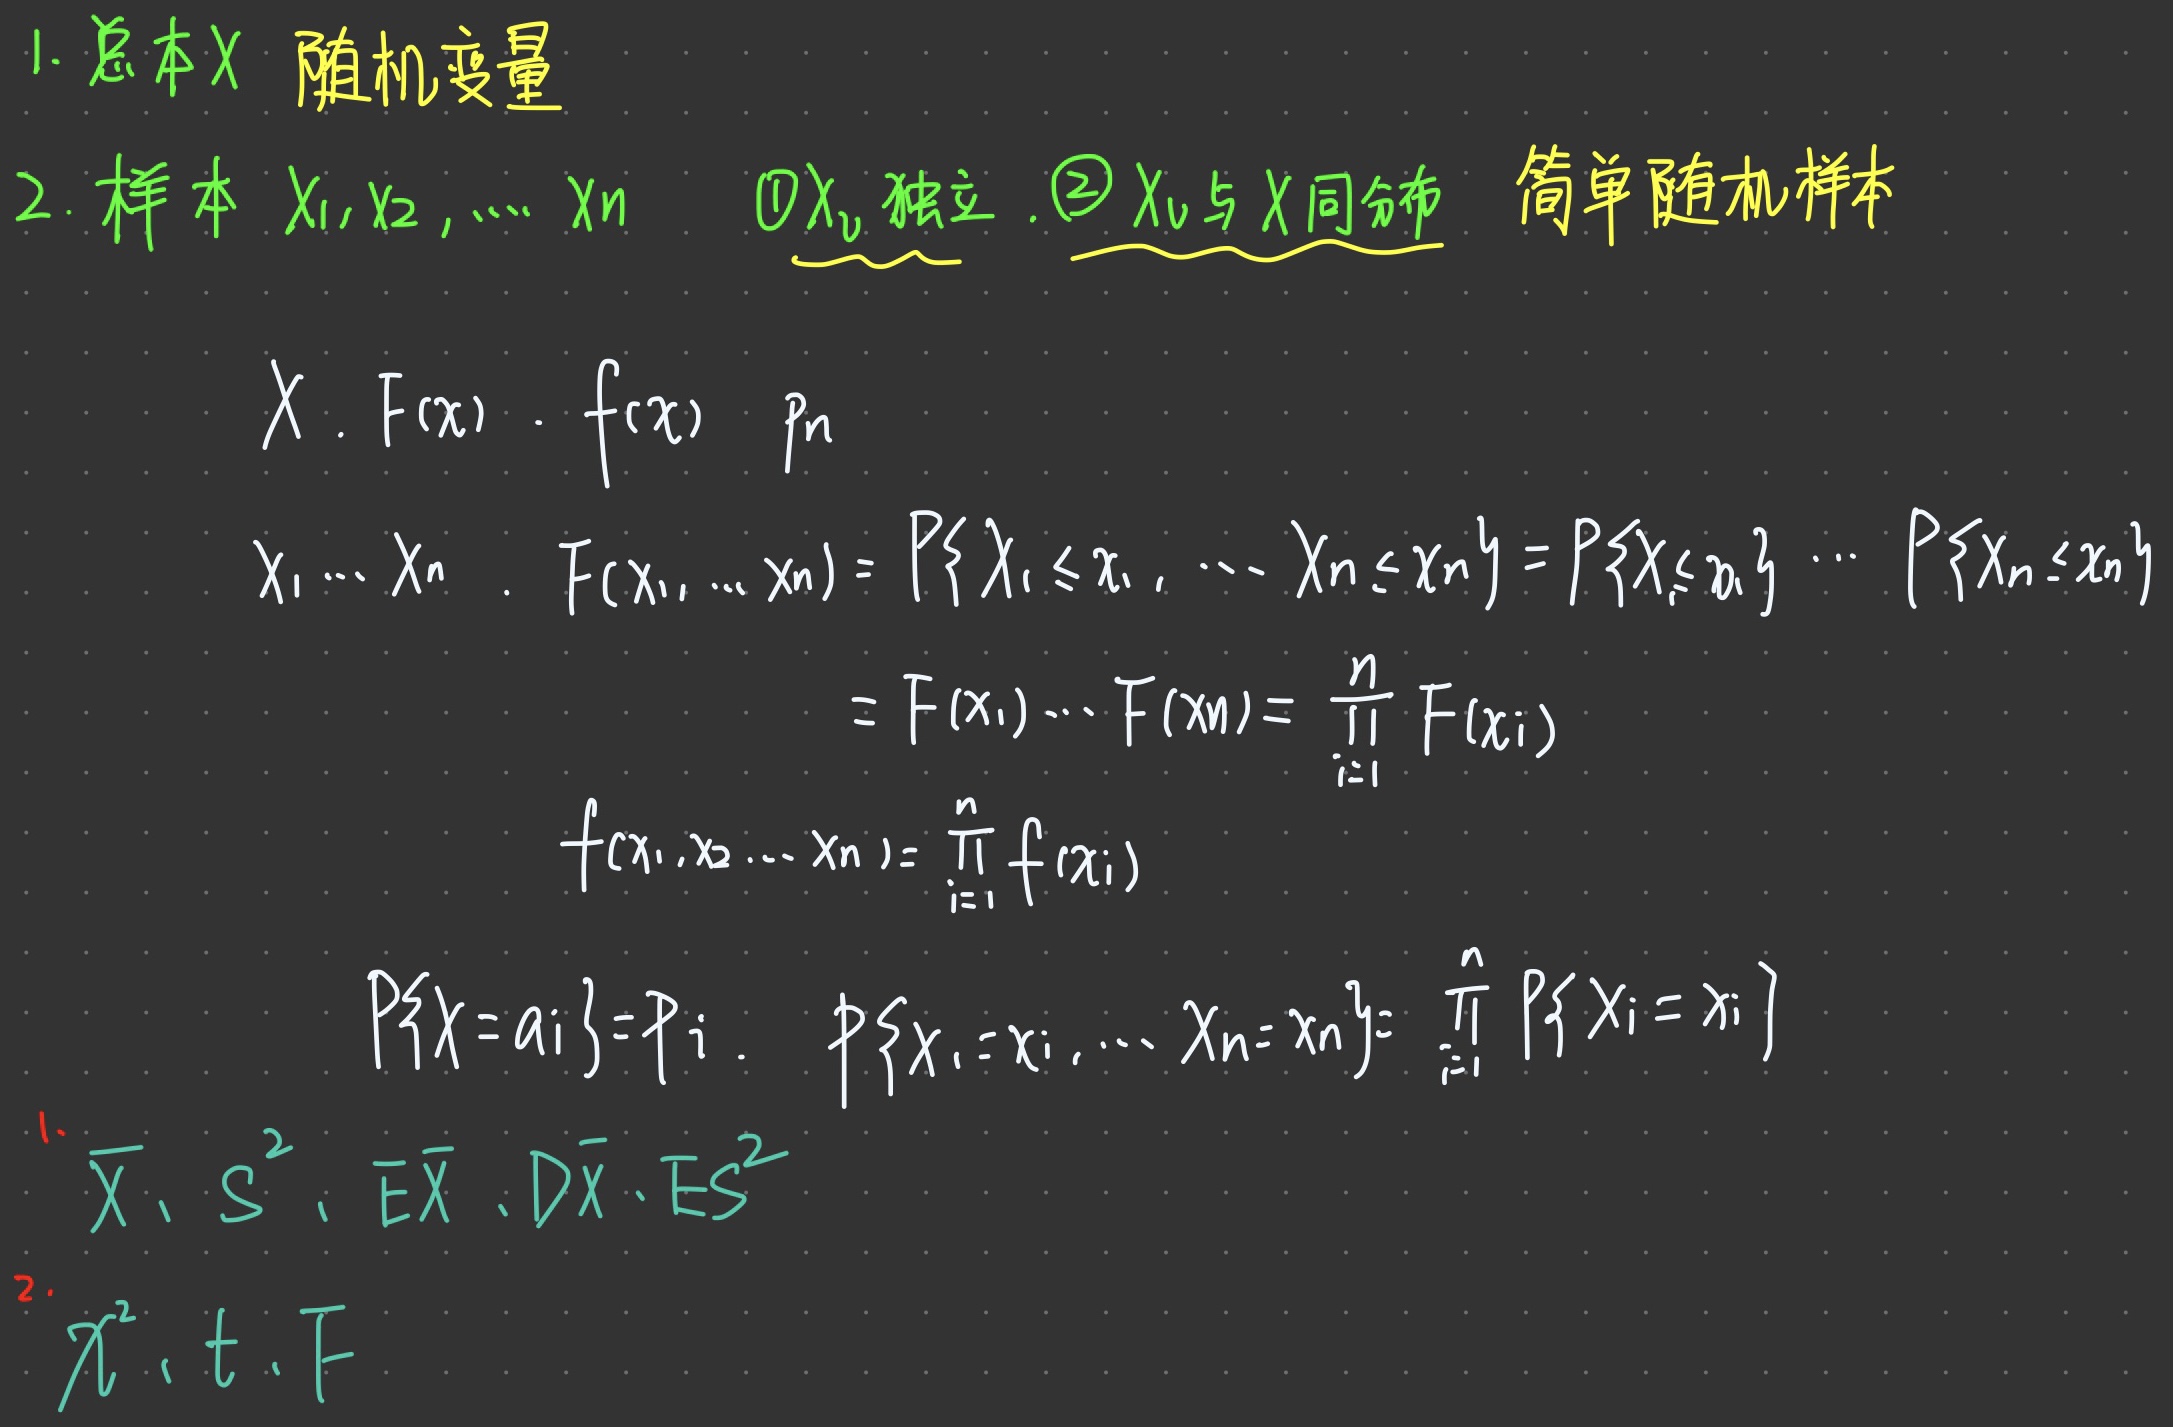 1. 总本X 随机变量
2. 样本 X₁, X₂, … Xn ①Xi 独立. ②Xi与X同分布 简单随机样本
X. F(x). f(x) pn
X₁…Xn. F(x₁, … xn) = P{X₁≤x₁, … Xn≤xn} = P{X₁≤x₁} … P{Xn≤xn}
= F(x₁)…F(xn) = ∏ᵢ₌₁ⁿ F(xi)
f(x₁,x₂…xn) = ∏ᵢ₌₁ⁿ f(xi)
P{X=ai}=pi. P{X₁=xi, … Xn=xn}= ∏ᵢ₌₁ⁿ P{Xi=xi}
1. X̄、S²、EX̄、DX̄、ES²
2. χ²、t、F